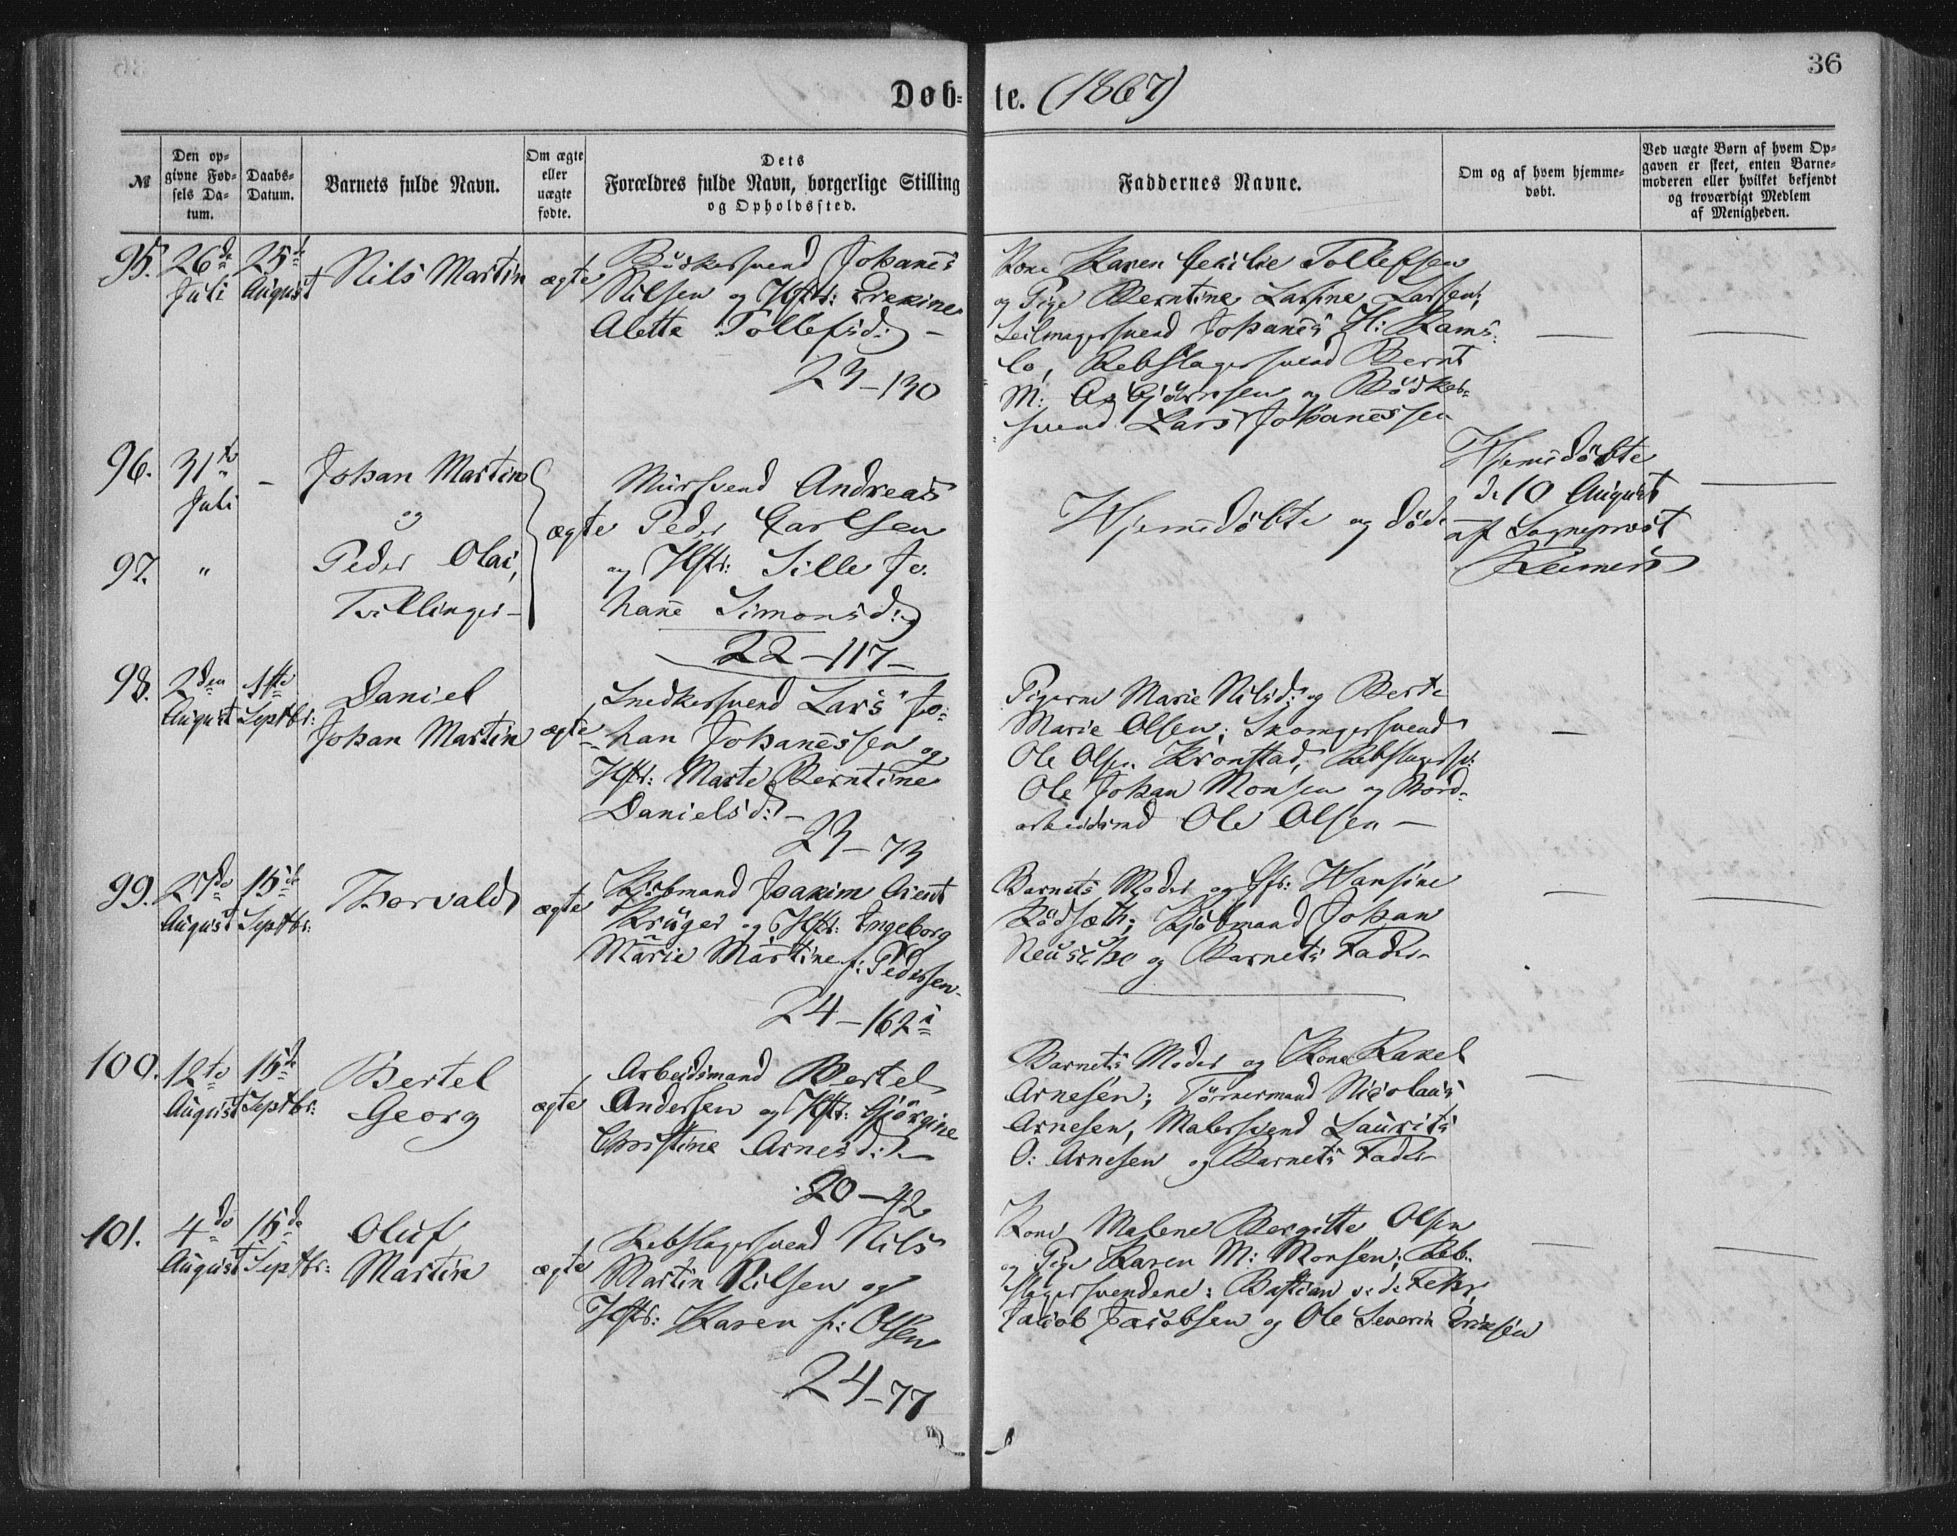 36
Døbte. (1867)
№
Den opgivne Fødsels Datum.
Daabs-Datum.
Barnets fulde Navn.
Om ægte eller uægte fødte.
Dets Forældres fulde Navn, borgerlige Stilling og Opholdssted.
Faddernes Navne.
Om og af hvem hjemmedøbt.
Ved uægte Børn af hvem Opgaven er skeet, enten Barnemoderen eller hvilket bekjendt og troværdigt Medlem af Menigheden.
95. 26de Juli 25de August Nils Martin ægte
Bödkersvend Johanes
Nilsen og Hstr:
Aletta Tollefsd:
23-130
Kone Karen Cecilie Tollefsen
og Pige Berntine Larsine Larsen;
Seilmagersvend Johanes H: Rams-
lo, Rebslagersvend Bernt
M: Asbjörnsen og Bödker-
svend Lars Johanessen
96. 31te Juli - Johan Martin
og
97. " Peder Olai,
Tvillinger -
ægte
Mursvend Andreas
Peder Carlsen
og Hstr: Sille Jo-
hane Simonsd:
22-117-
Hjemedöbte og döde
Hjemedöbte
d: 10 August
af Sogneprest
98. 2den August 1ste Septbr: Daniel
Johan Martin ægte
Snedkersvend Lars Jo-
han Johanessen og
Hstr: Marte Berntine
Danielsd: -
23-73
Pigerne Marie Nilsd: og Berte
Marie Olsen; Skomgersvend
Ole Olsen Kronstad, Rebslagersv:
Ole Johan Monsen og Bord-
arbeidsmd Ole Olsen -
99. 27de August 15de Septbr: Thorvald ægte
Kjöbmand Joakim Arent
Krüger og Hstr: Ingeborg
Marie Martine f: Pedersen -
24-162
Barnets Moder og Hansine
Rödsæth; Kjöbmand Johan
og Barnets Fader
100. 12te August 15de Septbr: Bertel
Georg ægte
Arbeidsmand Bertel
Andersen og Hstr: Gjörgine
Christine Arnesd: -
20-42
Barnets Moder og Kone Rakel
Arnesen; Tömmermand Nicolaus
Arnesen, Malersvend Laurits
O: Arnesen og Barnets Fader
101. 4de August 15de Septbr: Oluf
Martin ægte
Rebslagersvend Nils
Martin Nilsen og
Hstr: Karen f: Olsen
24-77
Kone Malene Bergitte Olsen
og Pige Karen M: Monsen; Reb-
slagersvendene: Bastian v: d: Fehr,
Jacob Jacobsen og Ole Severin Eriksen